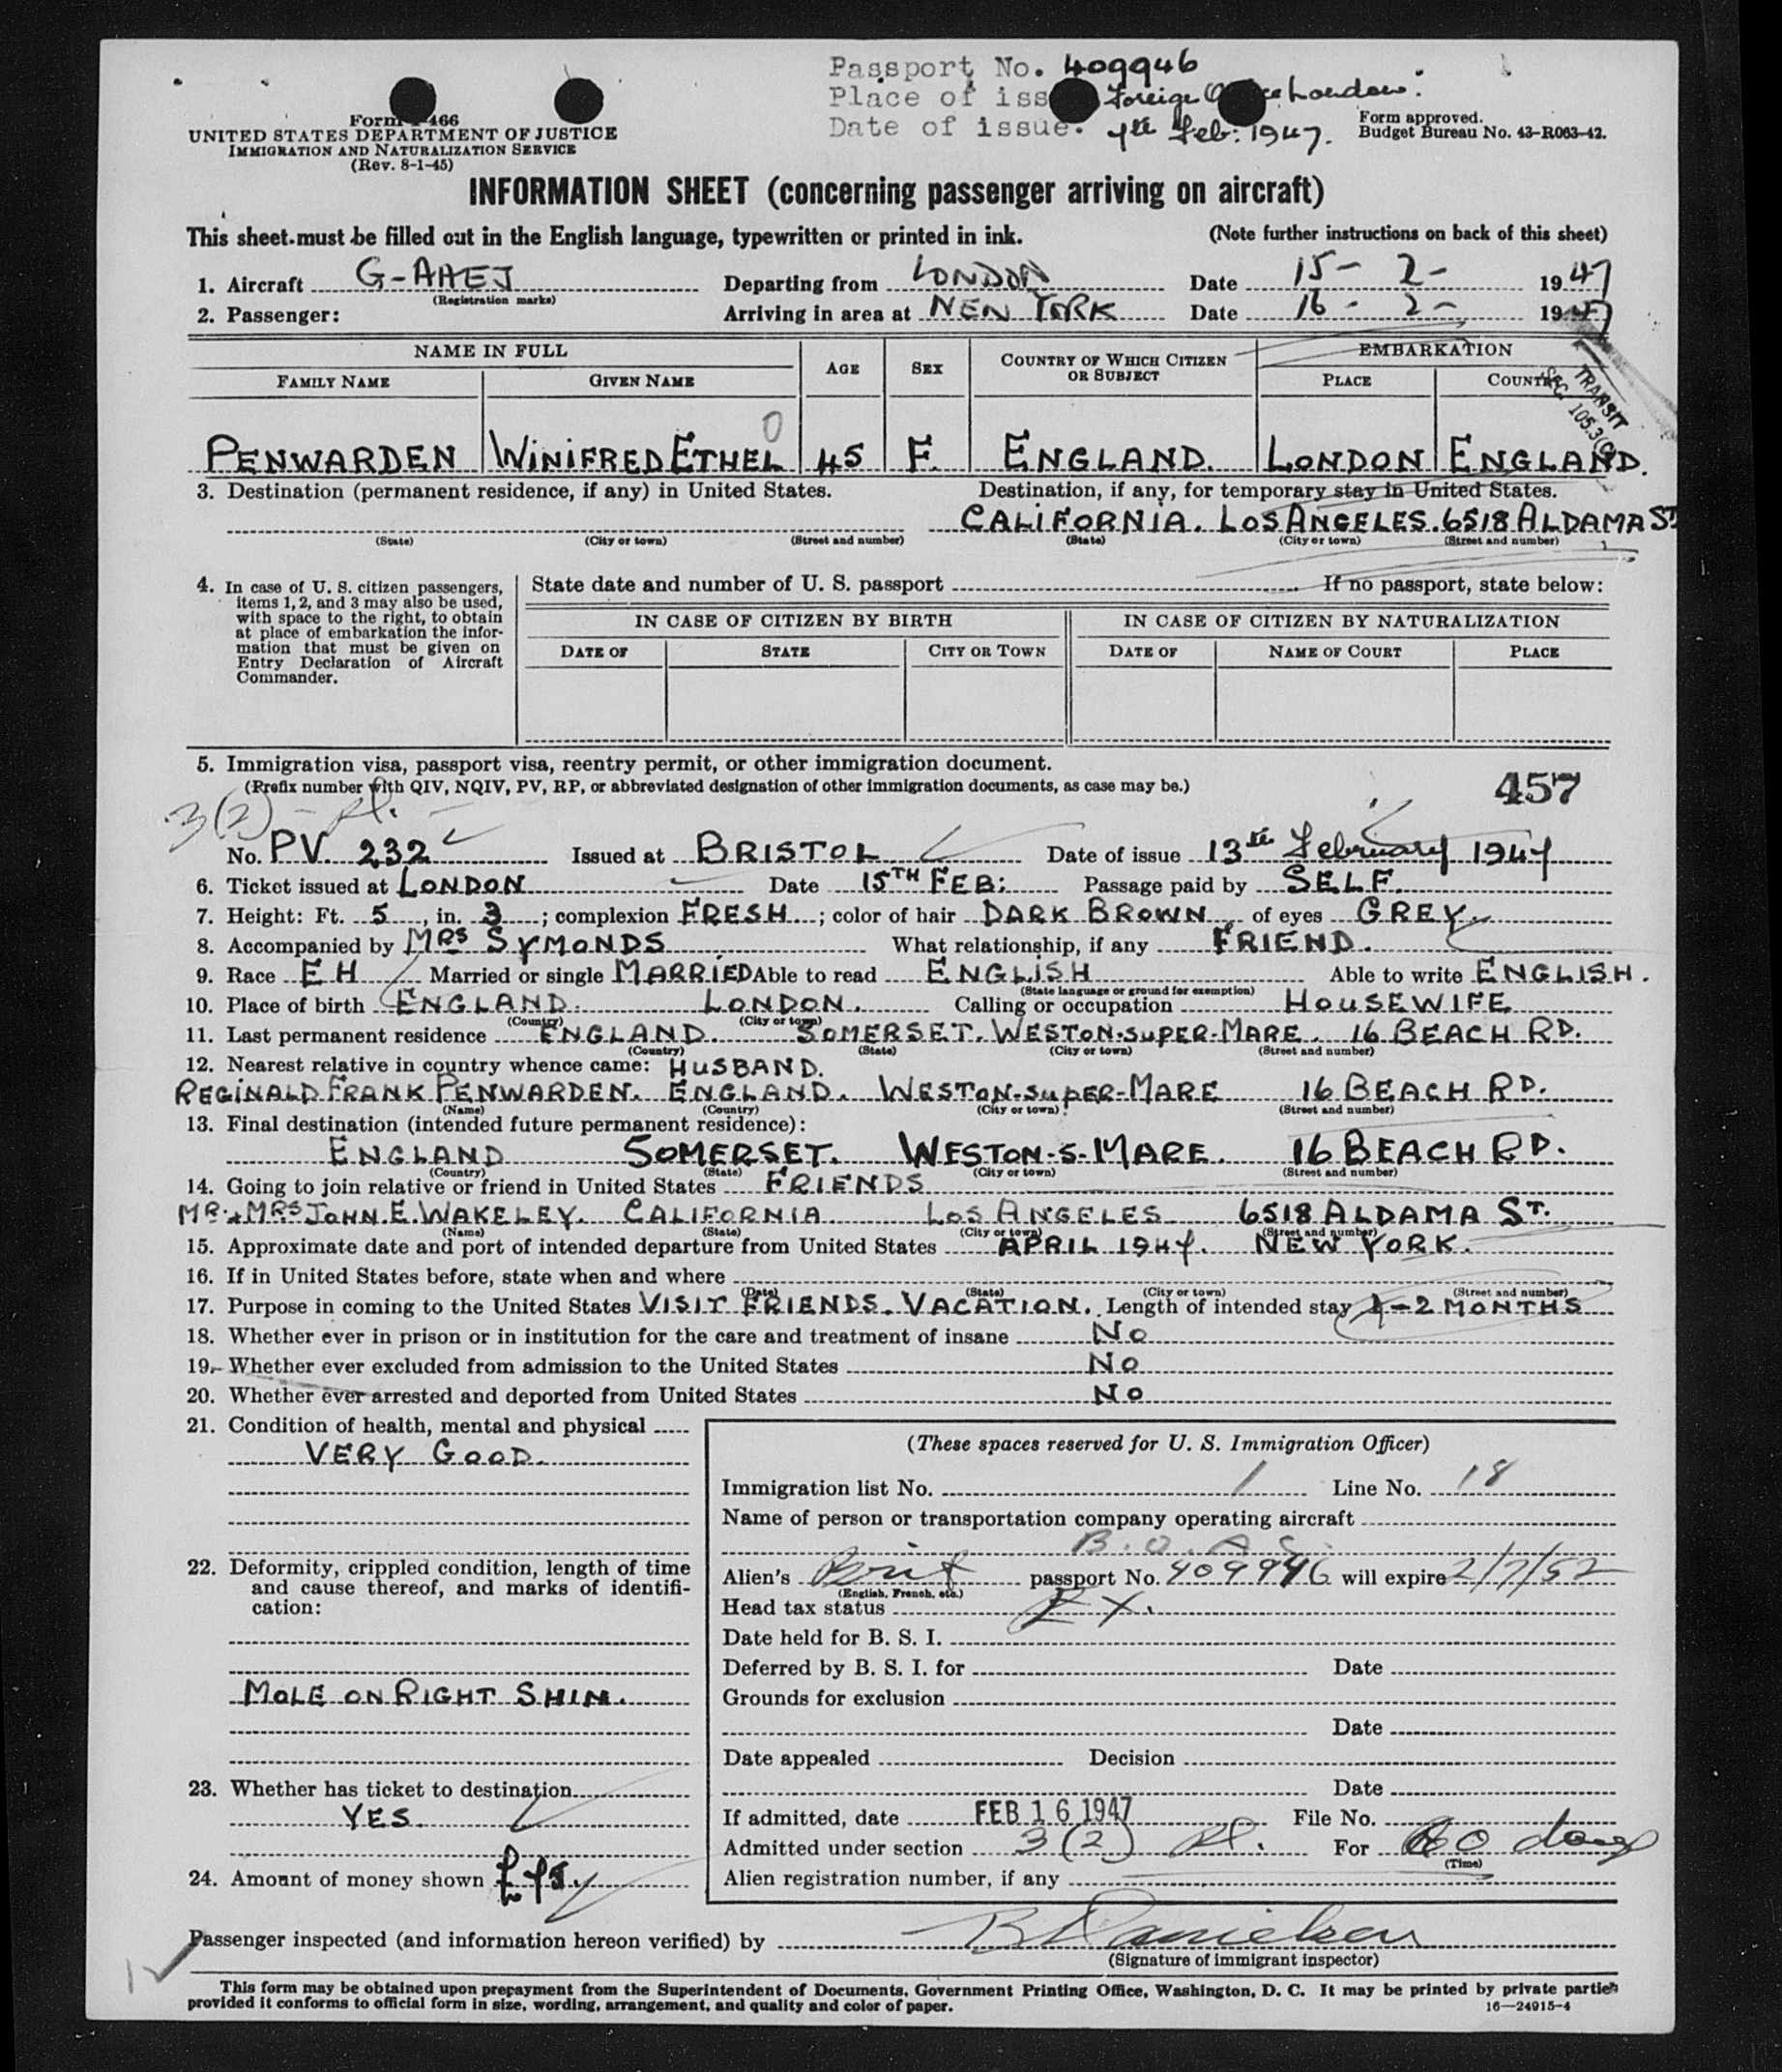 Passport No. 409946
Place of iss Foreign O ce London.
Date of issue. 7th Feb: 1947.
Form 466
UNITED STATES DEPARTMENT OF JUSTICE
IMMIGRATION AND NATURALIZATION SERVICE
(Rev. 8-1-45)
Form approved.
Budget Bureau No. 43-R063-42.
INFORMATION SHEET (concerning passenger arriving on aircraft)
This sheet must be filled out in the English language, typewritten or printed in ink. (Note further instructions on back of this sheet)
1. Aircraft G-AHEJ Departing from LONDON Date 15-2- 1947
(Registration marks)
2. Passenger: Arriving in area at NEW YORK Date 16-2- 1947
NAME IN FULL AGE SEX COUNTRY OF WHICH CITIZEN OR SUBJECT EMBARKATION
FAMILY NAME GIVEN NAME PLACE COUNTRY
TRANSIT
SEC. 105.3(
PENWARDEN WINIFRED ETHEL 45 F. ENGLAND. LONDON ENGLAND.
3. Destination (permanent residence, if any) in United States. Destination, if any, for temporary stay in United States.
CALIFORNIA. LOS ANGELES. 6518 ALDAMA ST
(State) (City or town) (Street and number) (State) (City or town) (Street and number)
4. In case of U. S. citizen passengers, items 1, 2, and 3 may also be used, with space to the right, to obtain at place of embarkation the information that must be given on Entry Declaration of Aircraft Commander.
State date and number of U. S. passport If no passport, state below:
IN CASE OF CITIZEN BY BIRTH IN CASE OF CITIZEN BY NATURALIZATION
DATE OF STATE CITY OR TOWN DATE OF NAME OF COURT PLACE
5. Immigration visa, passport visa, reentry permit, or other immigration document.
(Prefix number with QIV, NQIV, PV, RP, or abbreviated designation of other immigration documents, as case may be.) 457
3(2) - Pl. -
No. PV. 232 Issued at BRISTOL Date of issue 13th February 1947
6. Ticket issued at LONDON Date 15TH FEB: Passage paid by SELF.
7. Height: Ft. 5, in. 3; complexion FRESH; color of hair DARK BROWN of eyes GREY.
8. Accompanied by MRS SYMONDS What relationship, if any FRIEND.
9. Race EH Married or single MARRIED Able to read ENGLISH Able to write ENGLISH.
(State language or ground for exemption)
10. Place of birth ENGLAND. LONDON. Calling or occupation HOUSEWIFE
(Country) (City or town)
11. Last permanent residence ENGLAND. SOMERSET. WESTON-SUPER-MARE. 16 BEACH RD.
(Country) (State) (City or town) (Street and number)
12. Nearest relative in country whence came: HUSBAND.
REGINALD FRANK PENWARDEN. ENGLAND. WESTON-SUPER-MARE 16 BEACH RD.
(Name) (Country) (City or town) (Street and number)
13. Final destination (intended future permanent residence):
ENGLAND SOMERSET. WESTON-S-MARE. 16 BEACH RD.
(Country) (State) (City or town) (Street and number)
14. Going to join relative or friend in United States FRIENDS
MR. & MRS JOHN. E. WAKELEY. CALIFORNIA LOS ANGELES 6518 ALDAMA ST.
(Name) (State) (City or town) (Street and number)
15. Approximate date and port of intended departure from United States APRIL 1947. NEW YORK.
16. If in United States before, state when and where
(Date) (State) (City or town) (Street and number)
17. Purpose in coming to the United States VISIT FRIENDS. VACATION. Length of intended stay 1-2 MONTHS
18. Whether ever in prison or in institution for the care and treatment of insane NO
19. Whether ever excluded from admission to the United States NO
20. Whether ever arrested and deported from United States NO
21. Condition of health, mental and physical
VERY GOOD.
22. Deformity, crippled condition, length of time and cause thereof, and marks of identification:
MOLE ON RIGHT SHIN.
23. Whether has ticket to destination
YES.
24. Amount of money shown £75.
(These spaces reserved for U. S. Immigration Officer)
Immigration list No. 1 Line No. 18
Name of person or transportation company operating aircraft
B. O. A. C.
Alien's Brit passport No. 409946 will expire 2/7/52
(English, French, etc.)
Head tax status EX.
Date held for B. S. I.
Deferred by B. S. I. for Date
Grounds for exclusion
Date
Date appealed Decision
Date
If admitted, date FEB 16 1947 File No.
Admitted under section 3(2) Pl. For 60 days
(Time)
Alien registration number, if any
Passenger inspected (and information hereon verified) by B Danielsen
(Signature of immigrant inspector)
This form may be obtained upon prepayment from the Superintendent of Documents, Government Printing Office, Washington, D. C. It may be printed by private parties
provided it conforms to official form in size, wording, arrangement, and quality and color of paper. 16—24915-4